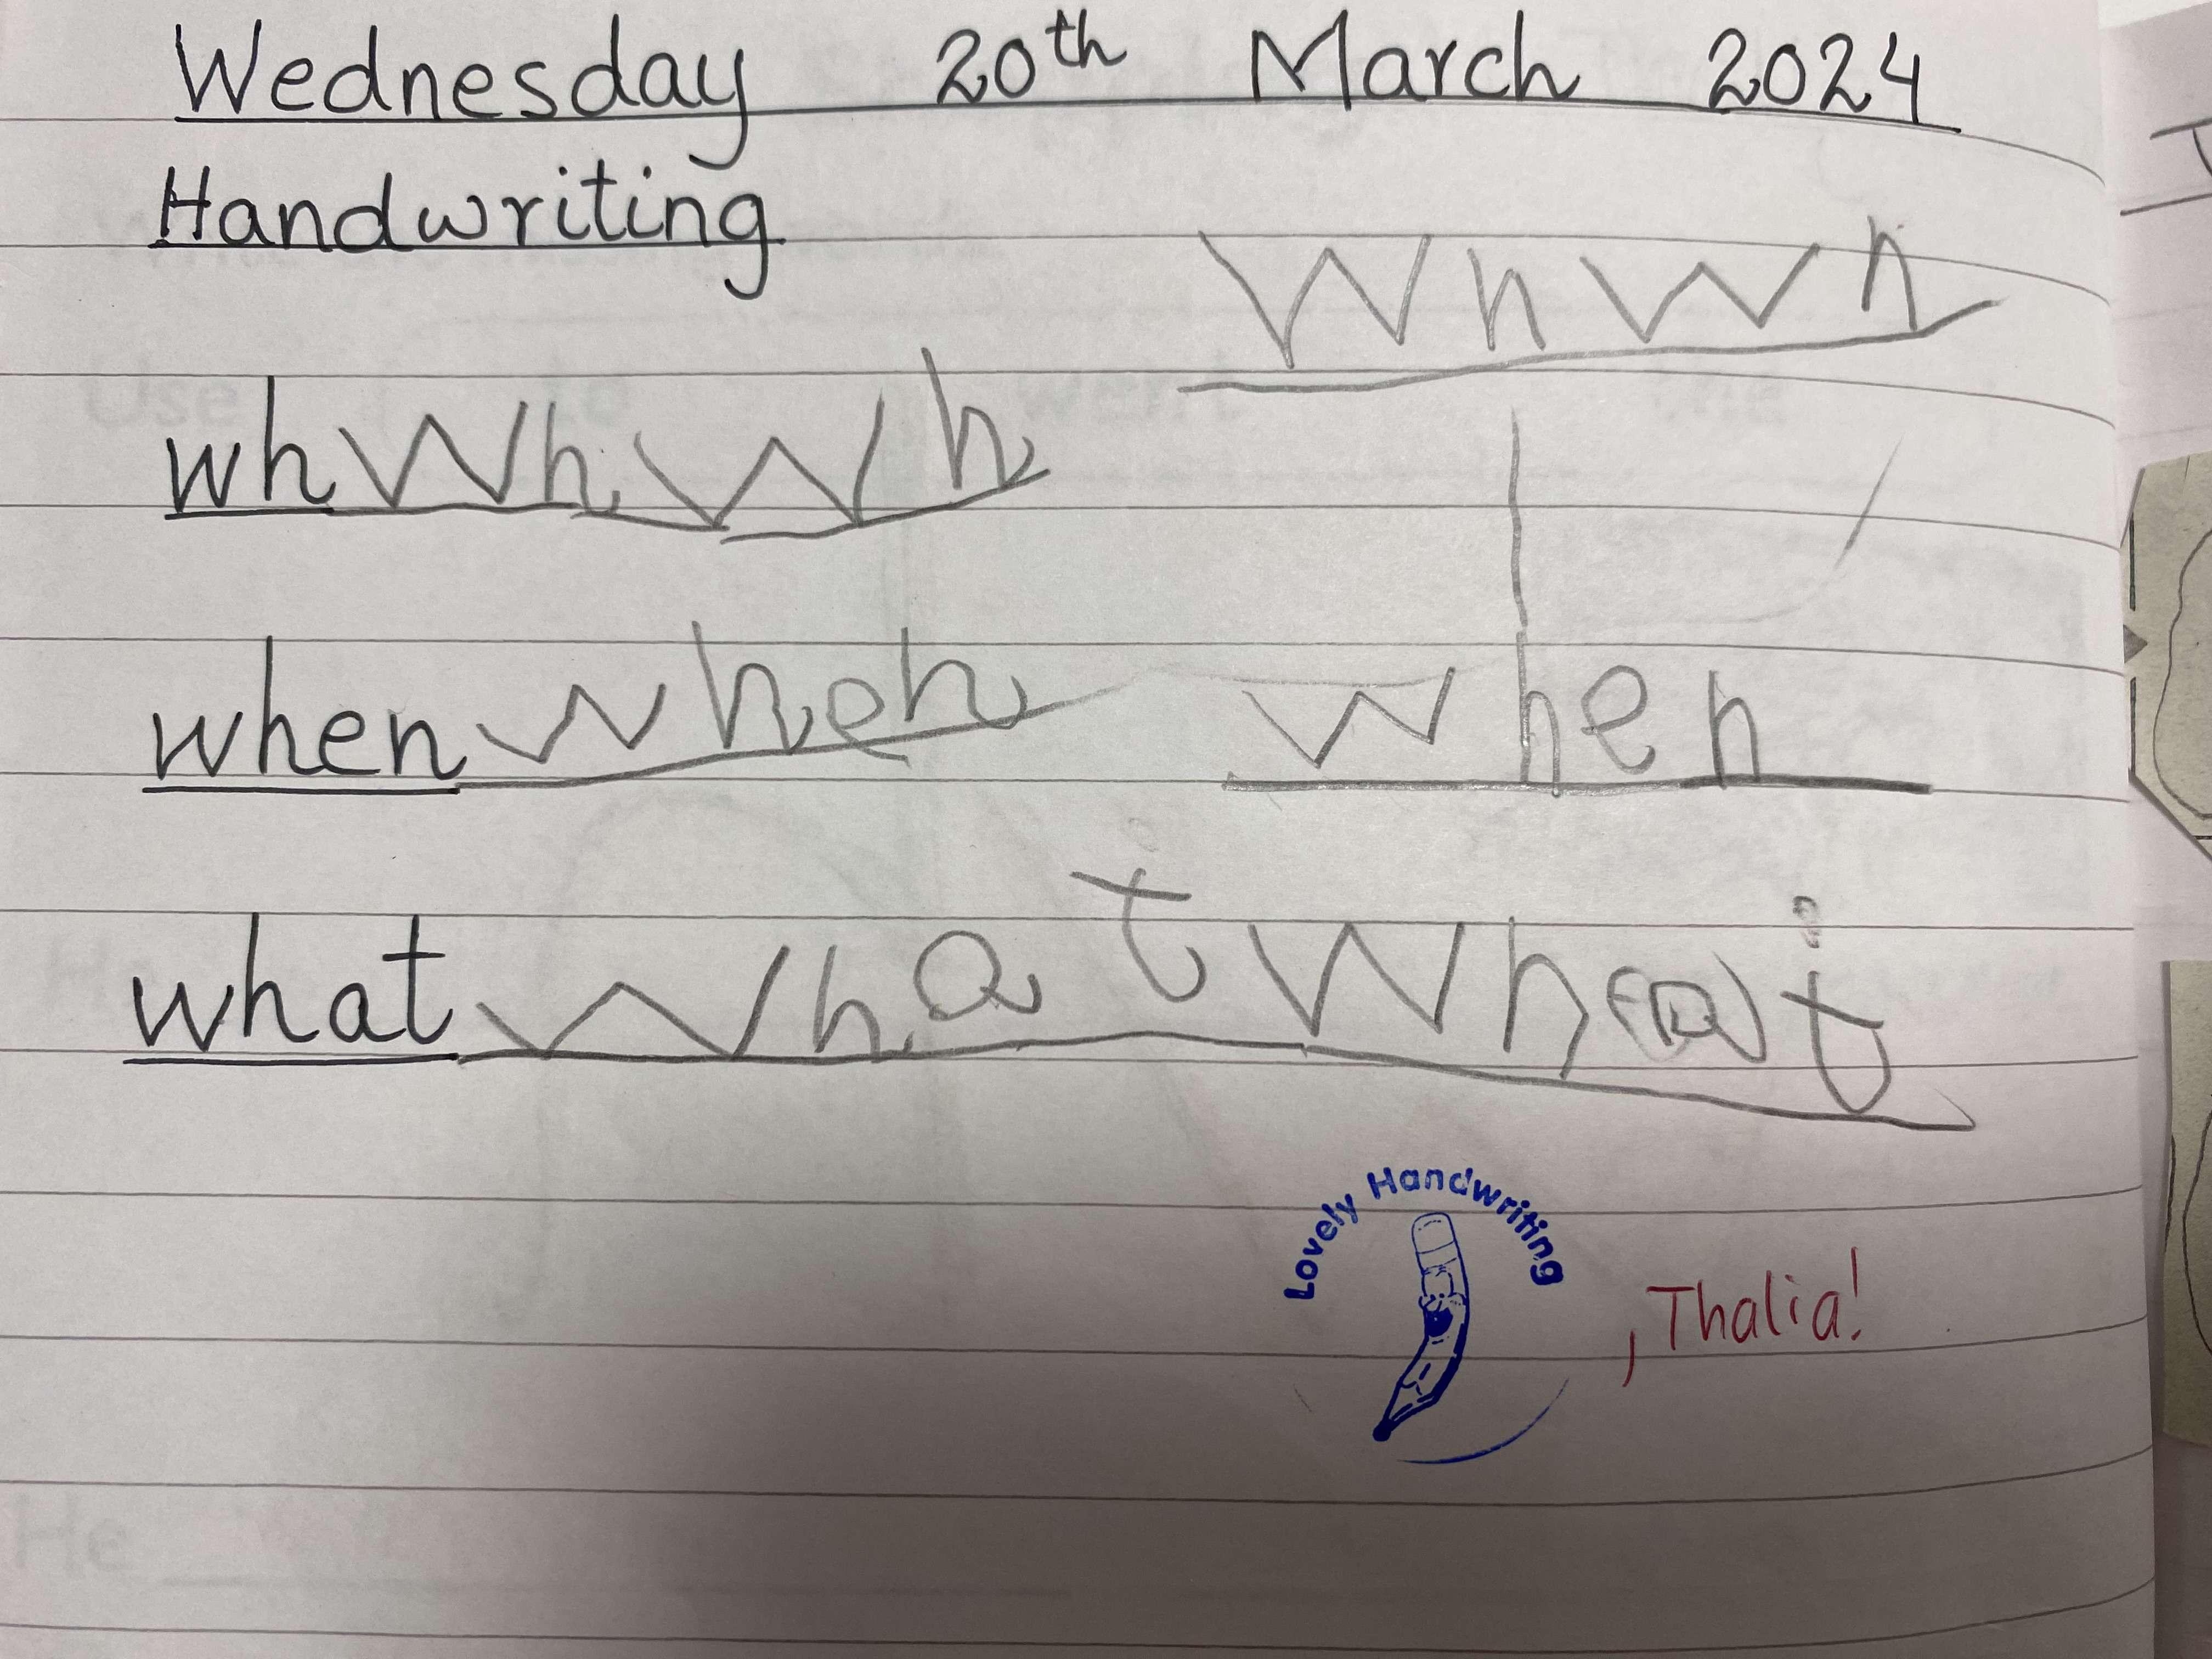 Wednesday 20th March 2024
Handwriting
wh wh
wh wh wh
when when when
what what what
Lovely Handwriting
, Thalia!
He